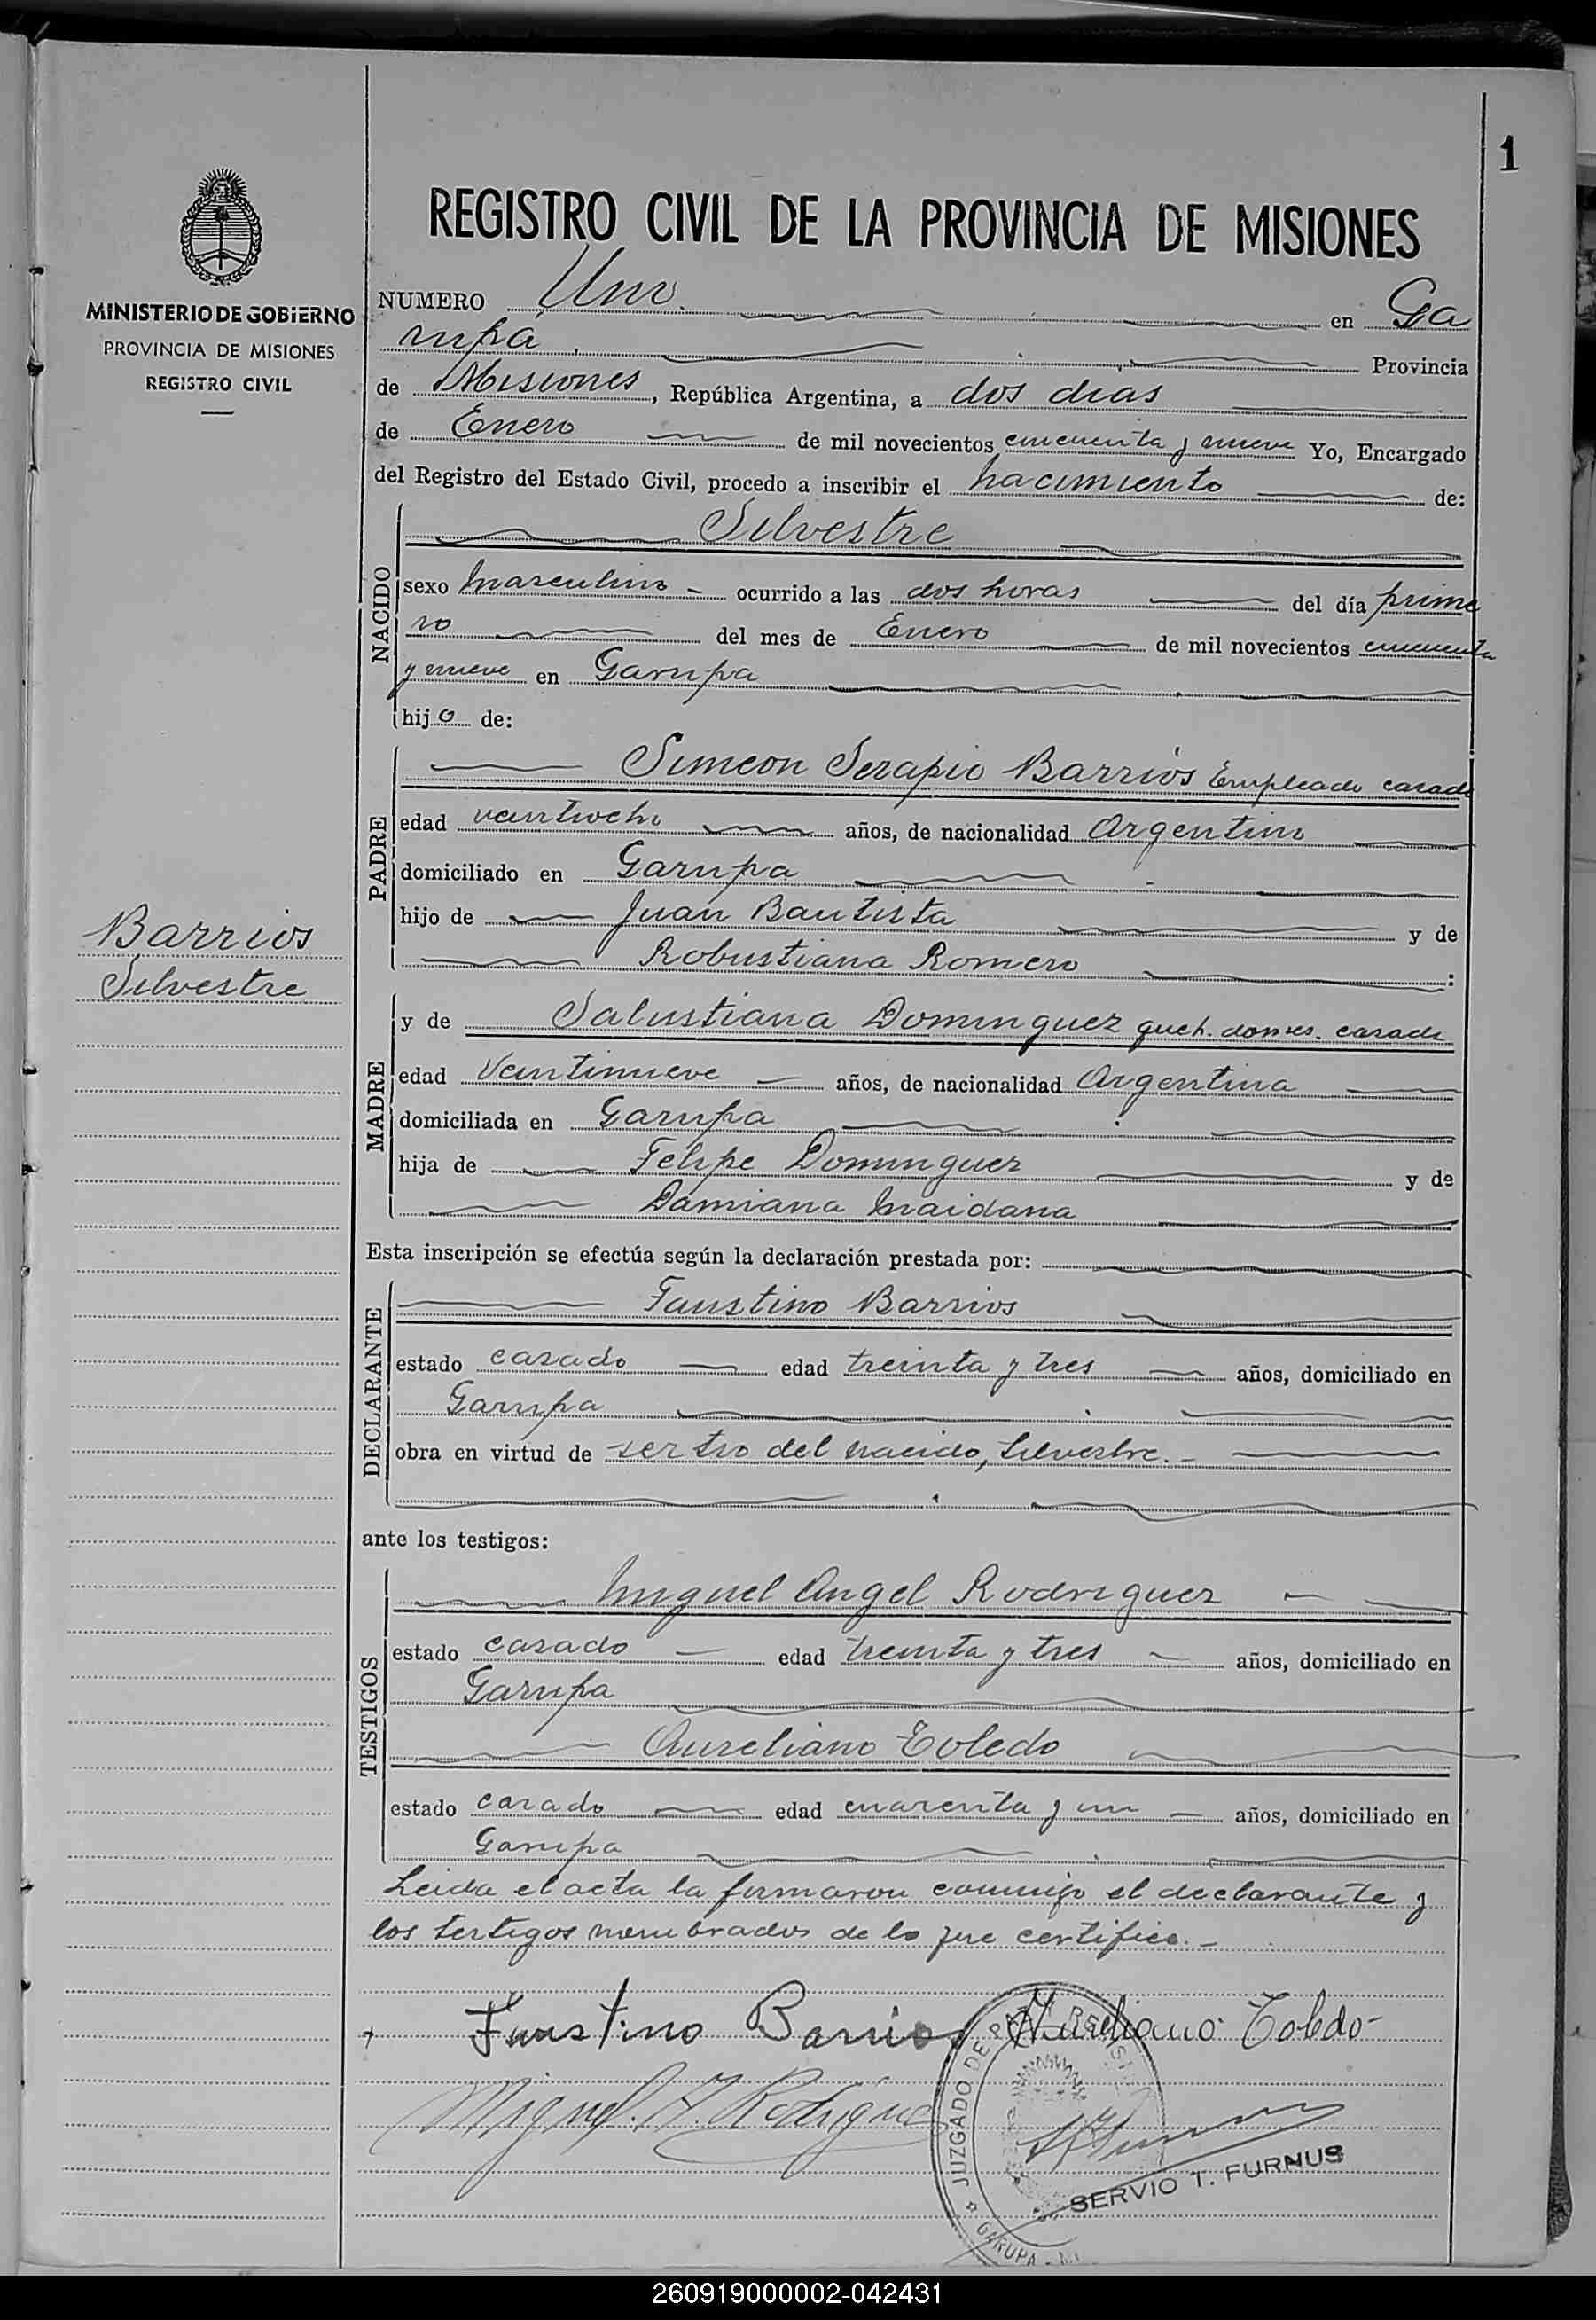 1
REGISTRO CIVIL DE LA PROVINCIA DE MISIONES
MINISTERIO DE GOBIERNO
PROVINCIA DE MISIONES
REGISTRO CIVIL
NUMERO Uno en Ga
rupá Provincia
de Misiones, República Argentina, a dos dias
de Enero de mil novecientos cincuenta y nueve Yo, Encargado
del Registro del Estado Civil, procedo a inscribir el nacimiento de:
NACIDO
Silvestre
sexo masculino ocurrido a las dos horas del día prime
ro del mes de Enero de mil novecientos cincuenta
y nueve en Garupa
hijo de:
PADRE
Simeon Serapio Barrios Empleado casado
edad veintiocho años, de nacionalidad Argentino
domiciliado en Garupa
hijo de Juan Bautista y de
Robustiana Romero:
Barrios
Silvestre
MADRE
y de Salustiana Dominguez queh. domes. casada
edad Veintinueve años, de nacionalidad Argentina
domiciliada en Garupa
hija de Felipe Dominguez y de
Damiana Maidana
Esta inscripción se efectúa según la declaración prestada por:
DECLARANTE
Faustino Barrios
estado casado edad treinta y tres años, domiciliado en
Garupa
obra en virtud de ser tio del nacido, Silvestre.-
ante los testigos:
TESTIGOS
Miguel Angel Rodriguez
estado casado edad treinta y tres años, domiciliado en
Garupa
Aureliano Toledo
estado casado edad cuarenta y un años, domiciliado en
Garupa
Leida el acta la firmaron conmigo el declarante y
los testigos nombrados de lo que certifico.-
Faustino Barrios Aureliano Toledo
Miguel A. Rodriguez
JUZGADO DE PAZ
GARUPA
SERVIO T. FURNUS
260919000002-042431